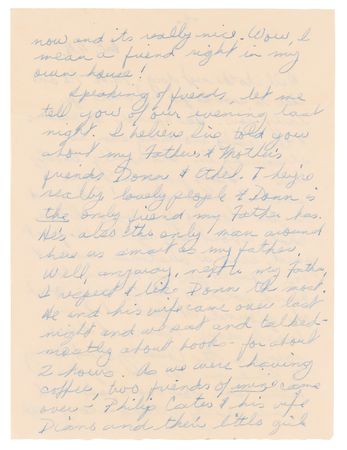 now and its really nice. Wow, I
mean a friend right in my
own house!
Speaking of friends, let me
tell you of our evening last
night. I believe I've told you
about my Father & Mother's
friends Donn & Ethel. They're
really lovely people & Donn is
the only friend my Father has.
He's also the only man around
here as smart as my father.
Well, anyway, next to my Father
I respect & like Donn the most.
He and his wife came over last
night and we sat and talked -
mostly about book - for about
2 hours. As we were having
coffee, two friends of mine came
over - Philip Cates & his wife
Diane and their little girl